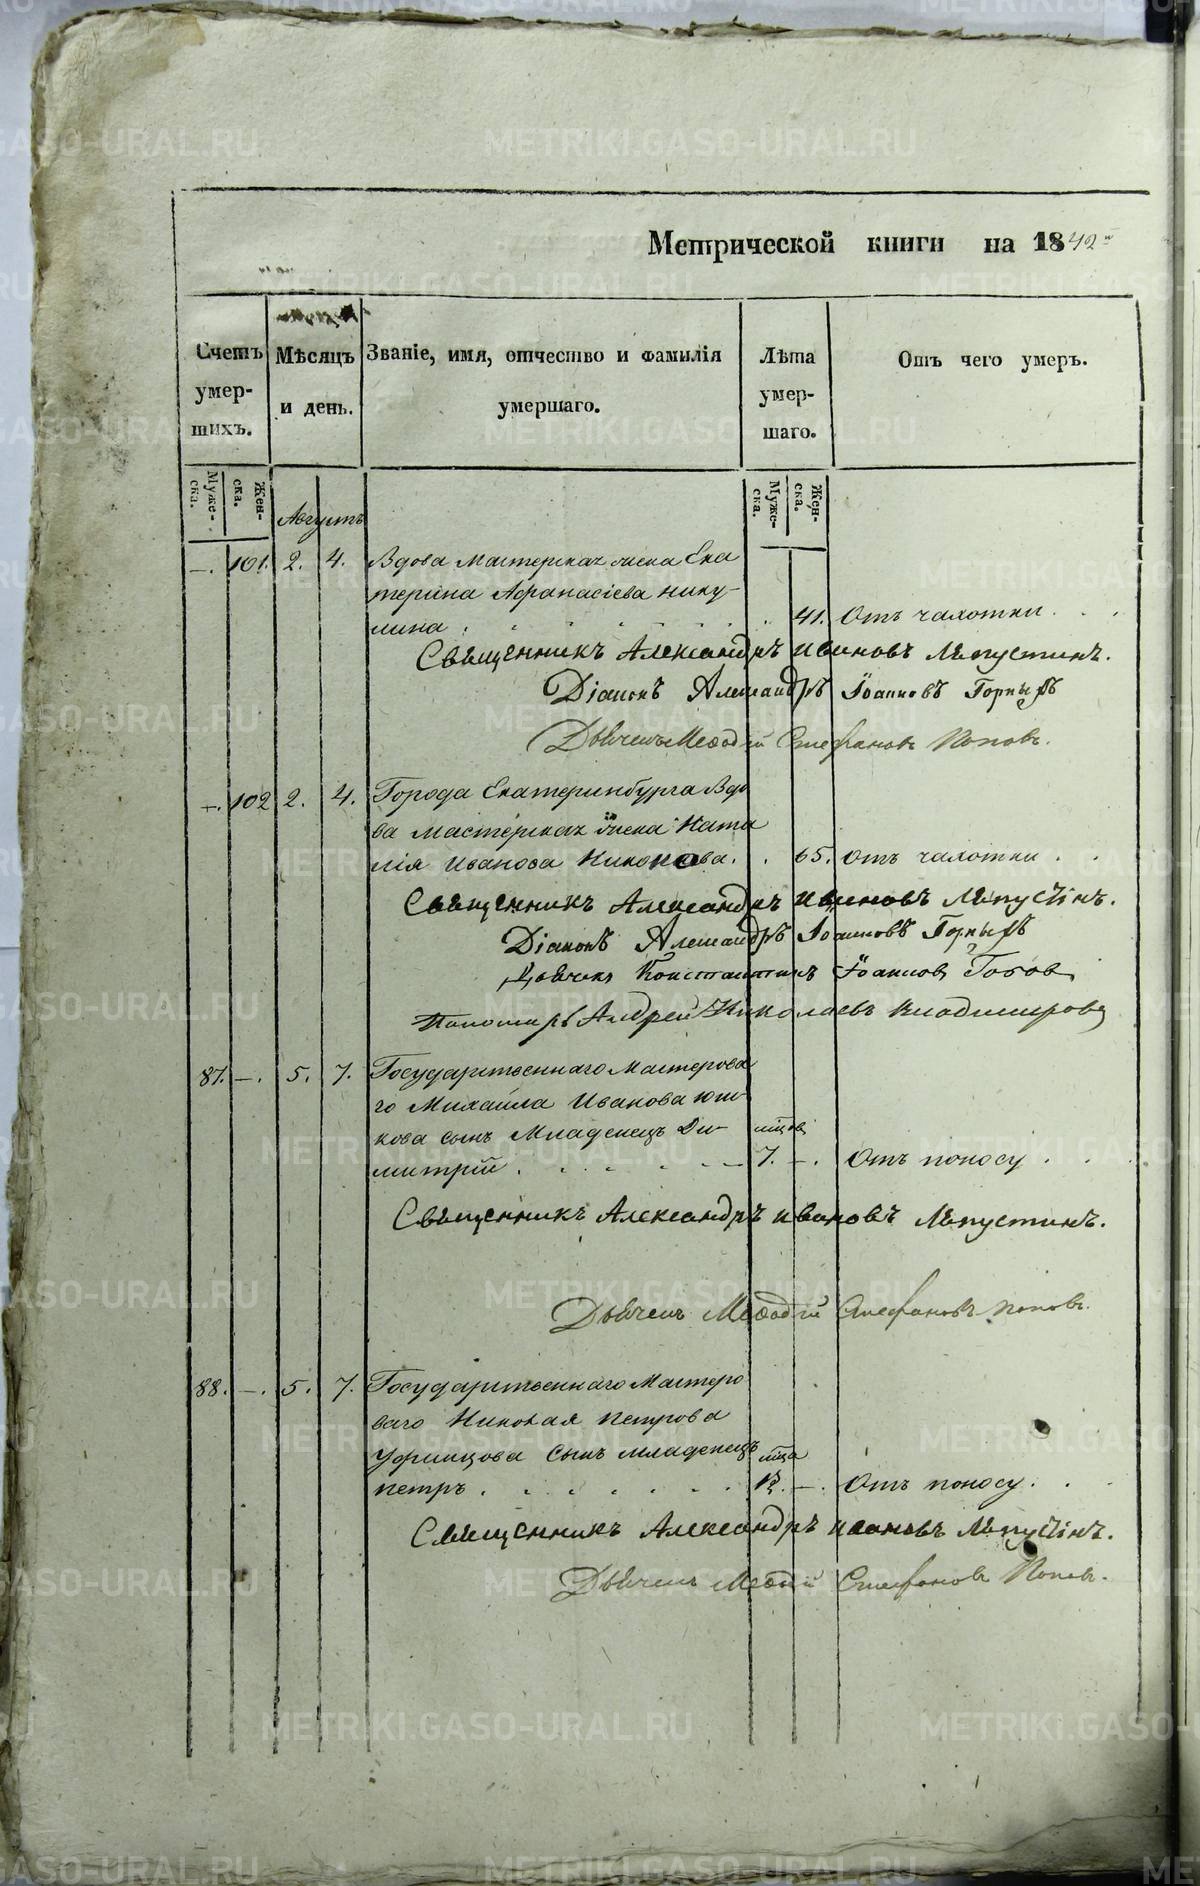 Метрической книги на 1842
Счетъ умер- шихъ.
Мѣсяцъ и день.
Званіе, имя, отчество и фамилія умершаго.
Лѣта умер- шаго.
Отъ чего умеръ.
Муже- ска.
Жен- ска.
Муже- ска.
Жен- ска.
Августъ
—. 101. 2. 4. Вдова мастерская жена Ека
терина Афанасіева Нику-
лина . 41. Отъ чахотки . . .
Священникъ Александръ Ивановъ Лѣпустинъ.
Діаконъ Александръ Іоанновъ Горныхъ
Дьячекъ Меѳодій Стефановъ Поповъ.
—. 102 2. 4. Города Екатеринбурга Вдо
ва мастерская жена Ната
лія Иванова Никонова. . 65. Отъ чахотки . .
Священникъ Александръ Ивановъ Лѣпустинъ.
Діаконъ Александръ Іоанновъ Горныхъ
Дьячекъ Константинъ Іоанновъ
Пономарь Андрей Николаевъ Владимировъ
87. —. 5. 7. Государственнаго мастерова
го Михаила Иванова Юш-
кова сынъ младенецъ Ди-
митрій . 7. —. Отъ поносу . . .
Священникъ Александръ Ивановъ Лѣпустинъ.
Дьячекъ Меѳодій Стефановъ Поповъ.
88. —. 5. 7. Государственнаго мастеро
ваго Николая Петрова
Уфимцова сынъ младенецъ
Петръ . —. Отъ поносу . . .
Священникъ Александръ Ивановъ Лѣпустинъ.
Дьячекъ Меѳодій Стефановъ Поповъ.
METRIKI.GASO-URAL.RU